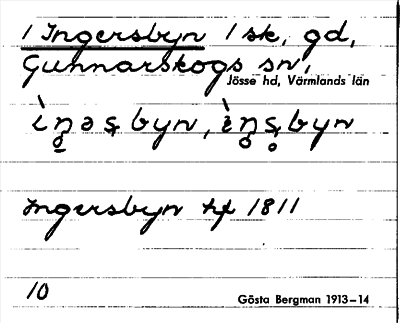 1 Ingersbyn 1 sk, gd,
Gunnarskogs sn,
Jösse hd, Värmlands län
Ingersbyn hf 1811
10
Gösta Bergman 1913–14